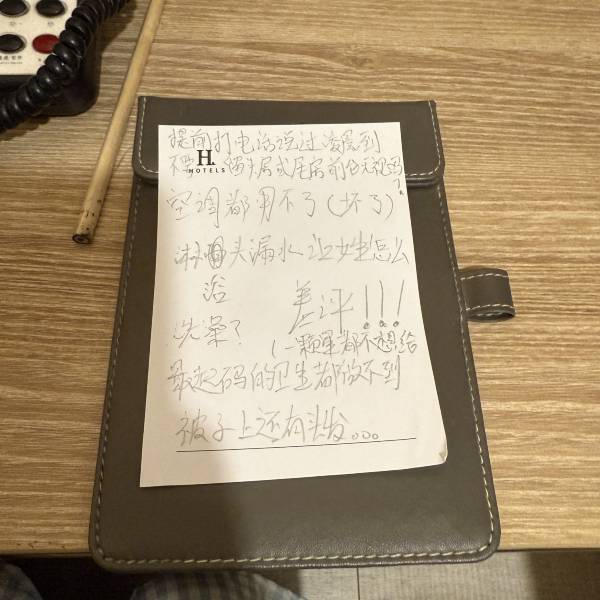 提前打电话说过凌晨到
不要留头房或尾房前台无视吗
H.
HOTELS
了
空调都用不了(坏了)
淋浴头漏水让女生怎么
浴
洗澡?
差评!!!
(一颗星都不想给
最起码的卫生都做不到
被子上还有头发。。。